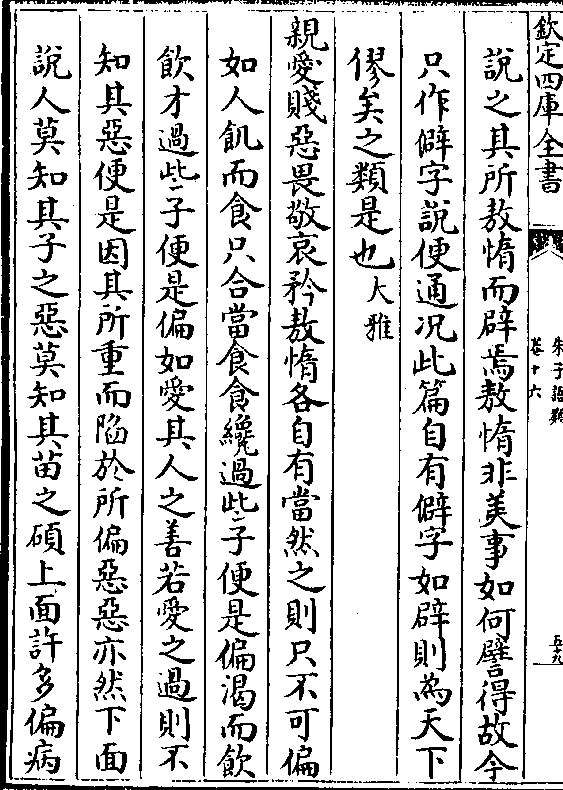 欽定四庫全書
朱子語類
卷十六
五十九
說之其所敖惰而辟焉敖惰非美事如何譬得故今
只作僻字說便通况此篇自有僻字如辟則為天下
僇矣之類是也大雅
親愛賤惡畏敬哀矜敖惰各自有當然之則只不可偏
如人飢而食只合當食食纔過些子便是偏渴而飲
飲才過些子便是偏如愛其人之善若愛之過則不
知其惡便是因其所重而陷於所偏惡惡亦然下面
說人莫知其子之惡莫知其苗之碩上面許多偏病